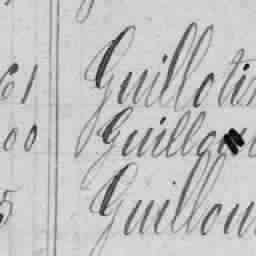 61 Guilloti
00 Guilla
5 Guillou